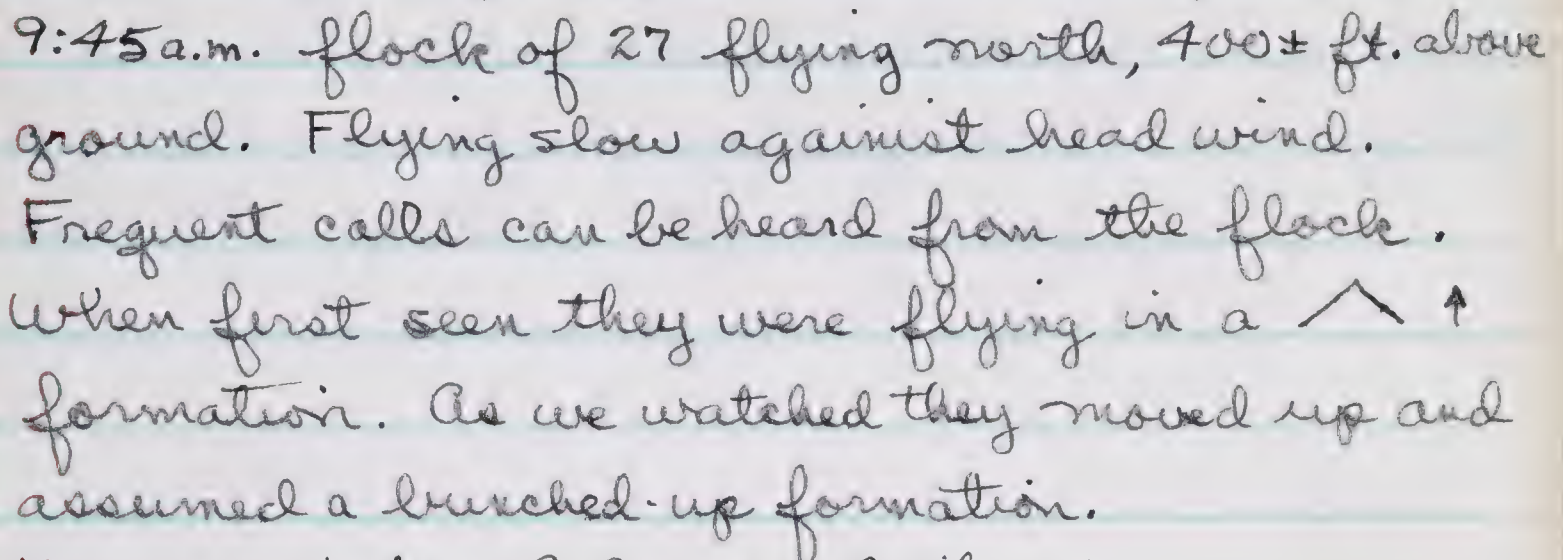 9:45 a.m. flock of 27 flying north, 400± ft. above
ground. Flying slow against head wind.
Frequent calls can be heard from the flock.
When first seen they were flying in a ︿ ↑
formation. As we watched they moved up and
assumed a bunched-up formation.